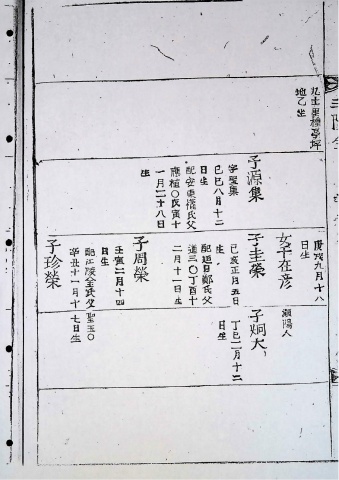 九士里樓亭坪
地乙坐
子源集
字聖集
己巳八月十二
日生
配安東權氏父
應植○氏寅十
一月二十八日
生
庚戌九月十八
日生
女子在彦
潮陽人
子圭榮
己亥正月五日
生
配迎日鄭氏父
道三○丁酉十
二月十一日生
子炯大
丁巳二月十二
日生
子周榮
壬寅二月十四
日生
子珍榮
配江陵金氏父聖玉○
辛丑十一月十七日生